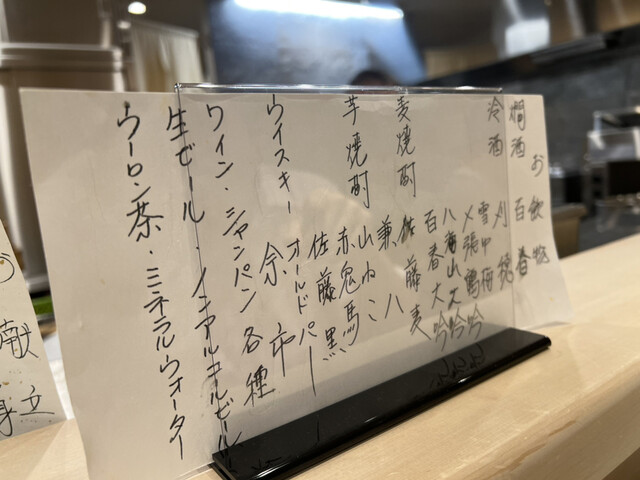 お飲物
燗酒 百春
冷酒 刈穂
雪中梅
〆張鶴 吟
八海山大吟
百春大吟
麦焼酎 佐藤麦
兼八
芋焼酎 山ねこ
赤鬼馬
佐藤黒
ウイスキー オールドパー
余市
ワイン・シャンパン各種
生ビール・ノンアルコールビール
ウーロン茶・ミネラルウォーター
お献立